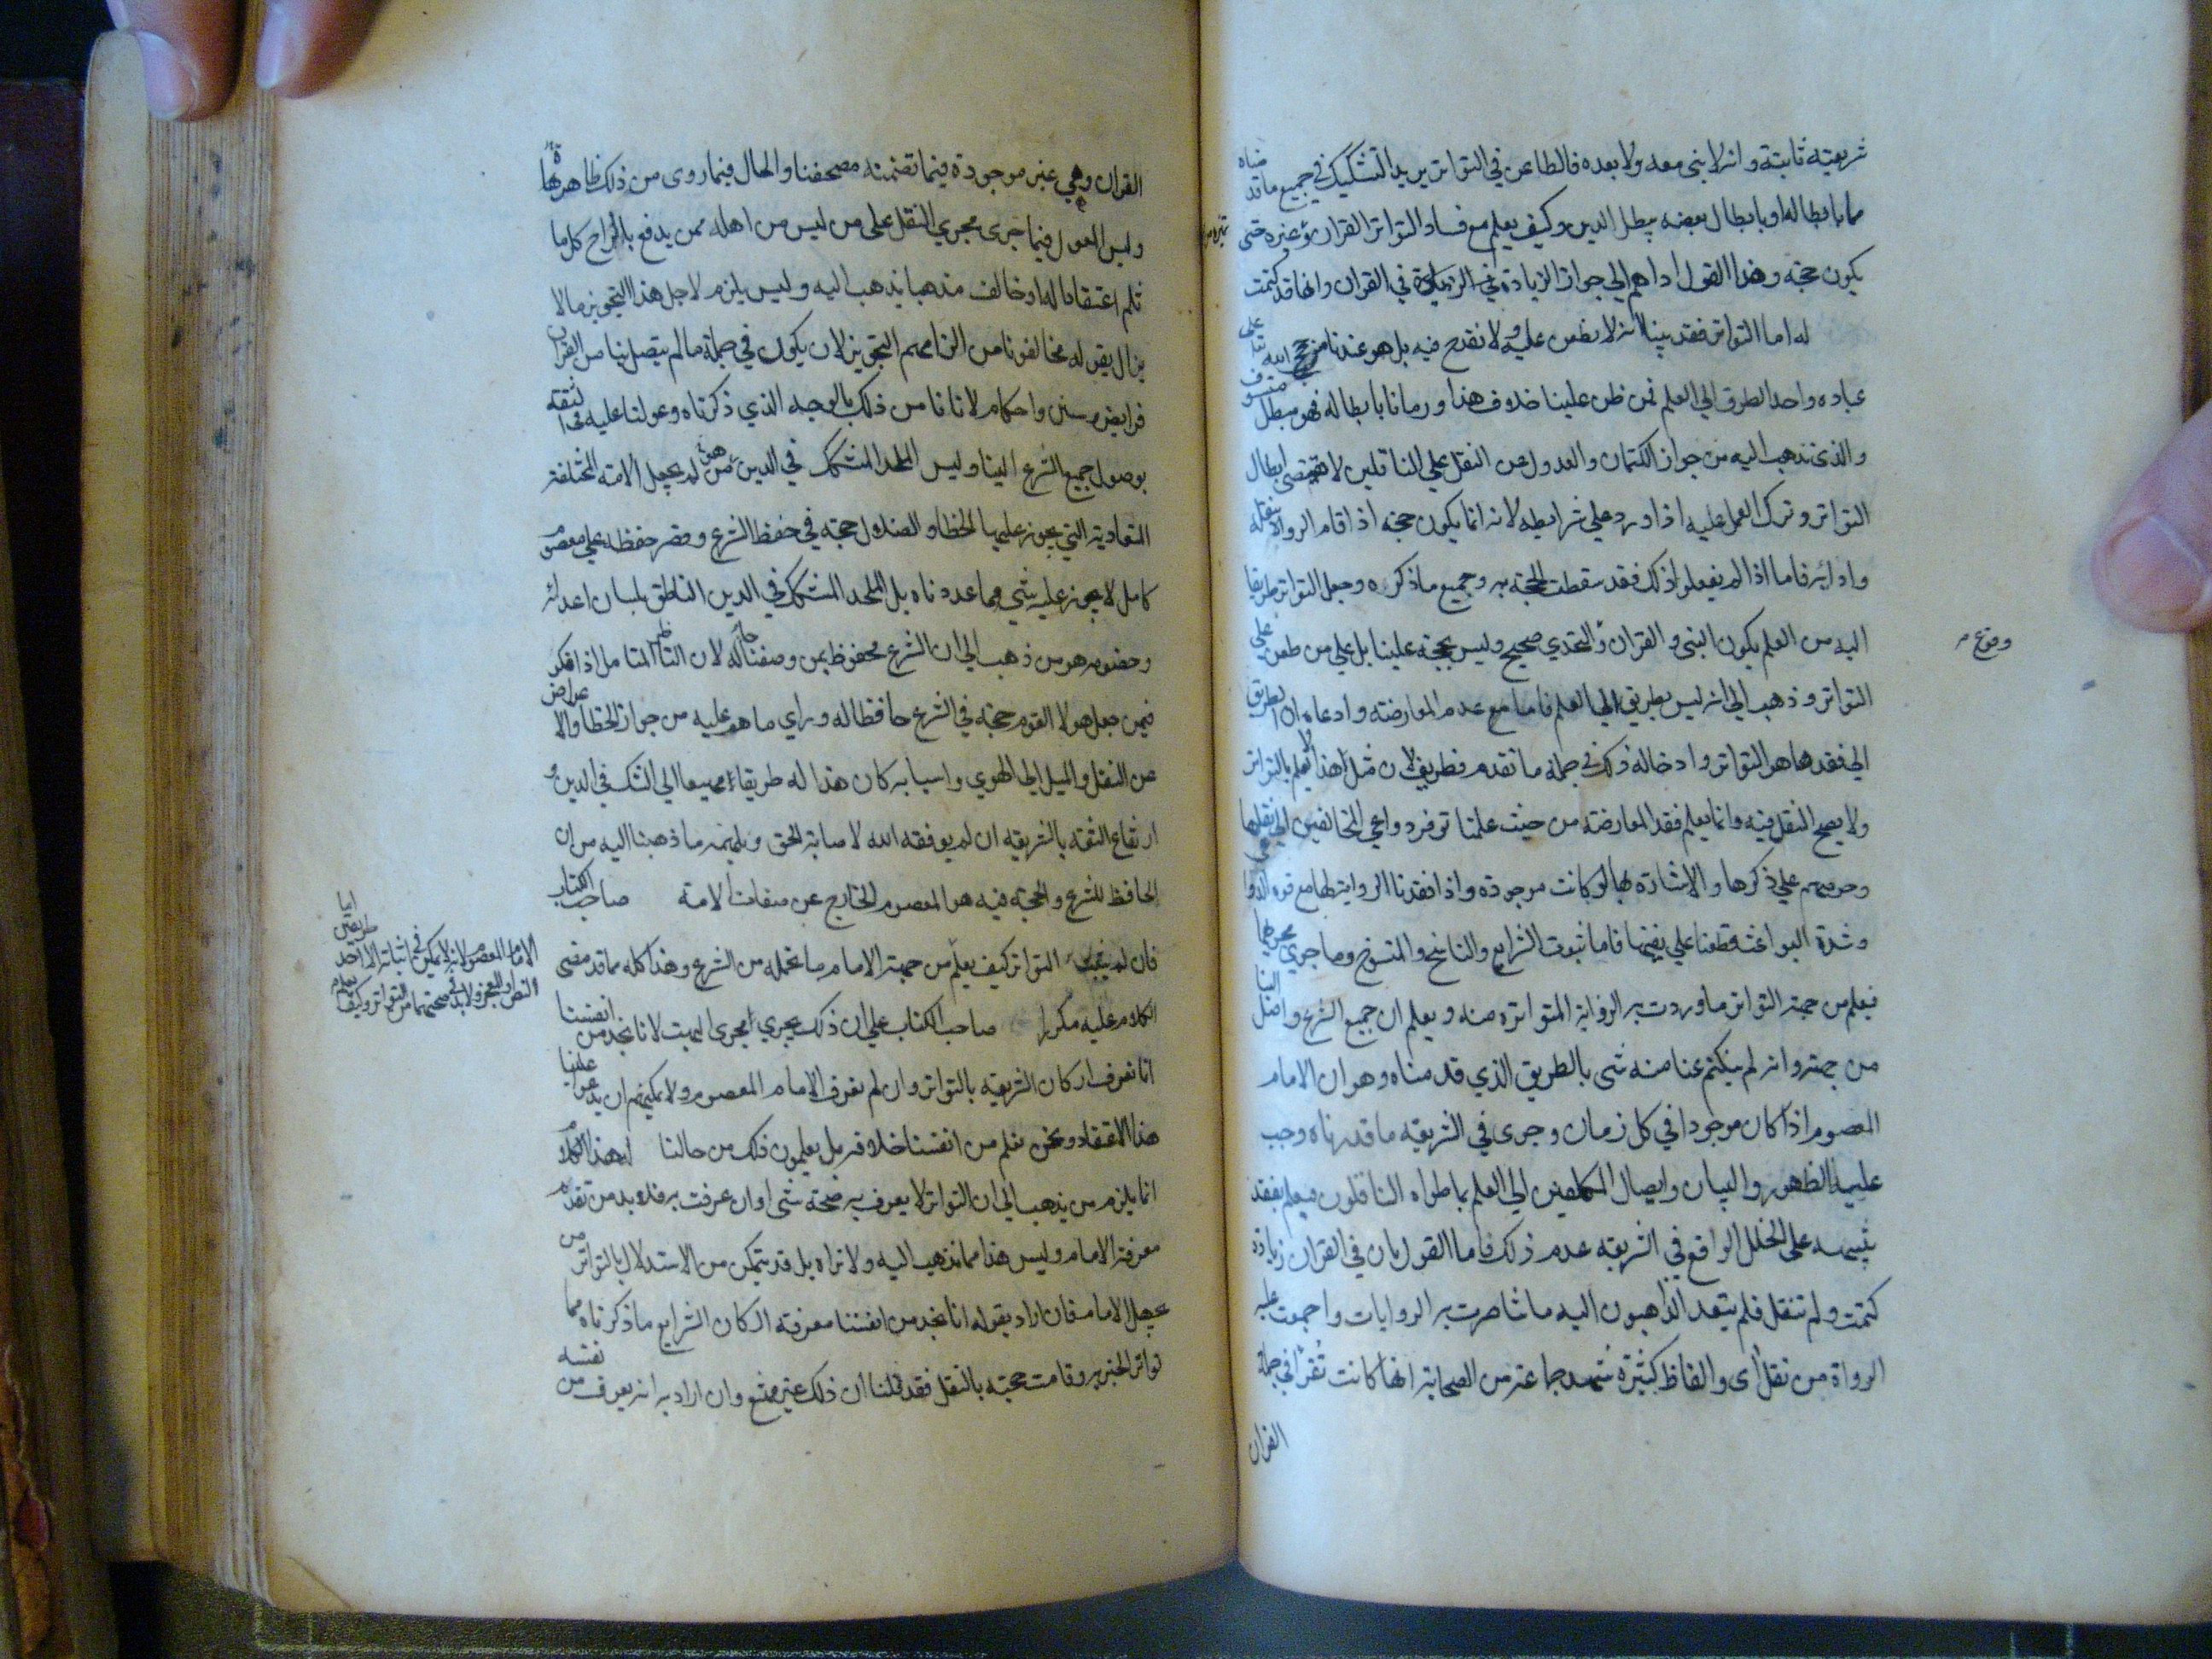 شريعته ثابتة وانه لا نبي معه ولا بعده فالطاعن في التواتر يريد التشكيك في جميع ما قدمناه
مما بابطاله او بابطال بعضه يبطل الدين وكيف يعلم مع فساد التواتر القران وغيره حتى
يكون حجة وهذا القول اداهم الي جواز الزيادة في القران وانها قد كتمت
له اما التواتر فقد بينا انه لا نطعن عليه ولا نقدح فيه بل هو عندنا من حجج الله تعالى على
عباده واحد الطرق الي العلم فمن ظن علينا خلاف هذا ورمانا بابطاله فهو مبطل
والذي نذهب اليه من جواز الكتمان والعدول عن النقل علي الناقلين لا يقتضي ابطال
التواتر وترك العمل عليه اذا ورد علي شرايطه لانه انما يكون حجة اذا قام الرواة بنقله
وادائه فاما اذا لم يفعلوا ذلك فقد سقطت الحجة به وجميع ما ذكره وجعل التواتر طريقا
اليه من العلم بكون النبي والقران والتحدي صحيح وليس بحجة علينا بل علي من طعن علي
وقوع
التواتر وذهب الي انه ليس بطريق الي العلم فاما مع عدم المعارضة وادعاه ان الطريق
الي فقدها هو التواتر وادخاله ذلك في جملة ما تقدم فطريف لان مثل هذا لا يعلم بالتواتر
ولا يصح النقل فيه وانما يعلم فقد المعارضة من حيث علمنا توفر دواعي المخالفين الي نقلها
وحرصهم علي ذكرها والاشادة بها لو كانت موجودة واذا فقدنا الرواية لها مع قوة الدواعي
وشدة البواعث قطعنا علي نفيها فاما ثبوت الشرايع والناسخ والمنسوخ وما جري مجراهما
فيعلم من جهة التواتر ما وردت به الرواية المتواترة منه ويعلم ان جميع الشرع واصل الينا
من جهته وانه لم ينكتم عنا منه شي بالطريق الذي قدمناه وهو ان الامام
المعصوم اذا كان موجودا في كل زمان وجرى في الشريعة ما قدرناه وجب
عليه الظهور والبيان وايصال المكلفين الي العلم بما طواه الناقلون فيعلم بفقد
تنبيهه على الخلل الواقع في الشريعة عدم ذلك فاما القول بان في القران زيادة
كتمت ولم تنقل فلم يتعد الذاهبون اليه ما تناصرت به الروايات واجمعت عليه
الرواة من نقل اى والفاظ كثيرة شهد جماعة من الصحابة انها كانت تقرا في جملة
القران
القران وهي غير موجودة فيما تضمنه مصحفنا والحال فيما روى من ذلك ظاهرة
وليس المعول فيما جرى مجري النقل على من ليس من اهله ممن يدفع بالراح كل ما
ثلم اعتقادا له او خالف مذهبا يذهب اليه وليس يلزم لاجل هذا التجويز ما لا
يزال يقوله مخالفونا من الزامهم التجويز لان يكون في جملة ما لم يتصل بنا من القران
فرايض وسنن واحكام لانا نامن ذلك بالوجه الذي ذكرناه وعولنا عليه في الثقة
بوصول جميع الشرع الينا وليس الملحد المشكك في الدين من لم يجعل الامة المختلفة
المتعادية التي يجوز عليها الخطا والضلال حجة في حفظ الشرع وقصر حفظه علي معصوم
كامل لا يجوز عليه شي مما عددناه بل الملحد المشكك في الدين الناطق بلسان اعدائه
وخصومه هو من ذهب الي ان الشرع محفوظ بمن وصفنا حاله لان الناظر المتامل اذا فكر
فيمن جعل هولا القوم حجة في الشرع حافظا له وراي ما هم عليه من جواز الخطا والاعراض
عن النقل والميل الي الهوي واسبابه كان هذا له طريقا مهيعا الي الشك في الدين و
ارتفاع الثقة بالشريعة ان لم يوفقه الله لاصابة الحق ويلهمه ما ذهبنا اليه من ان
الحافظ للشرع والحجة فيه هو المعصوم الخارج عن صفات الامة صاحب الكتاب
فان لم يثبت التواتر كيف يعلم من جهة الامام ما تحمله من الشرع وهذا كله مما قد مضى
ايضا
الامام المعصوم لانه لا يمكن في اثباته الا احد طريقين
النص او المعجز ولا بد في صحتهما من التواتر وكيف يعلم
الكلام عليه مكررا صاحب الكتاب علي ان ذلك يجري مجرى البهت لانا نجد من انفسنا
انا نعرف اركان الشريعة بالتواتر وان لم نعرف الامام المعصوم ولا يمكنهم ان يدعوا علينا
هذا الاعتقاد ونحن نعلم من انفسنا خلافه بل يعلمون ذلك من حالنا له هذا الكلام
انما يلزم من يذهب الي ان التواتر لا يعرف به صحة شي او ان عرفت به فلا بد من تقدم
معرفة الامام وليس هذا مما نذهب اليه ولا نراه بل قد يتمكن من الاستدلال بالتواتر من
يجهل الامام فان اراد بقوله انا نجد من انفسنا معرفة اركان الشرايع ما ذكرناه مما
تواتر الخبر به وقامت حجته بالنقل فقد قلنا ان ذلك غير ممتنع وان اراد به انه يعرف من نفسه